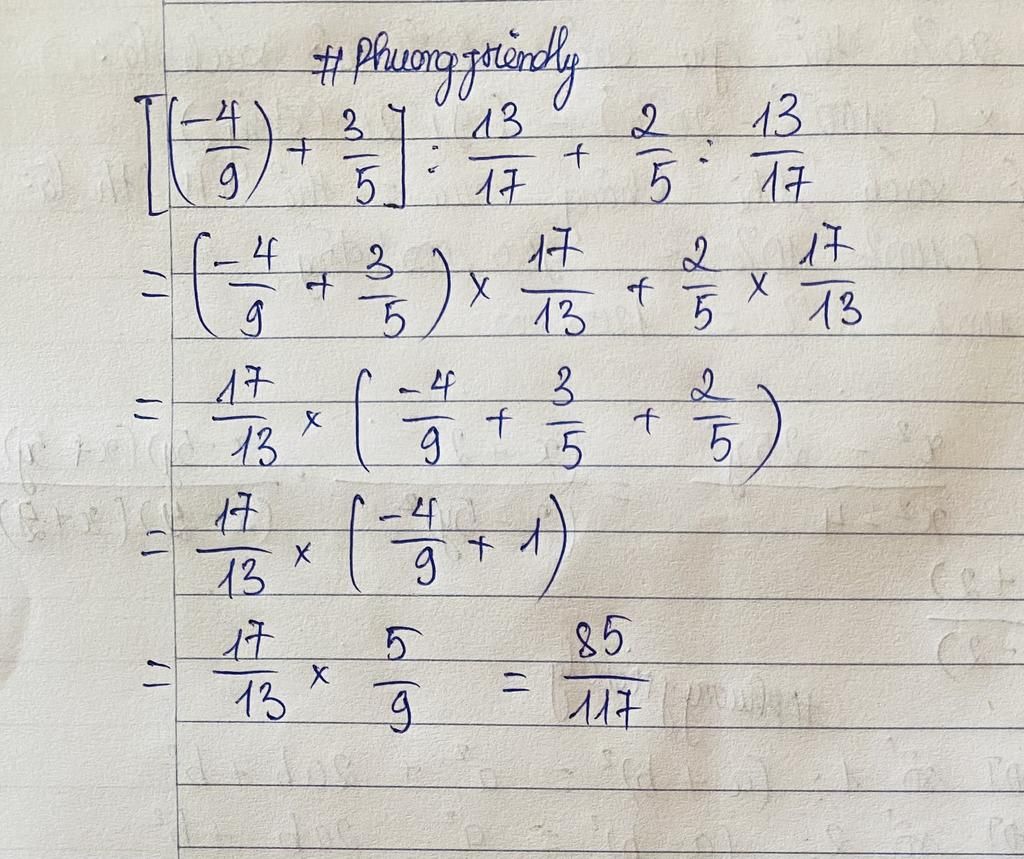 #Phuongfriendly
[(-4/9) + 3/5] : 13/17 + 2/5 : 13/17
= (-4/9 + 3/5) × 17/13 + 2/5 × 17/13
= 17/13 × (-4/9 + 3/5 + 2/5)
= 17/13 × (-4/9 + 1)
= 17/13 × 5/9 = 85/117